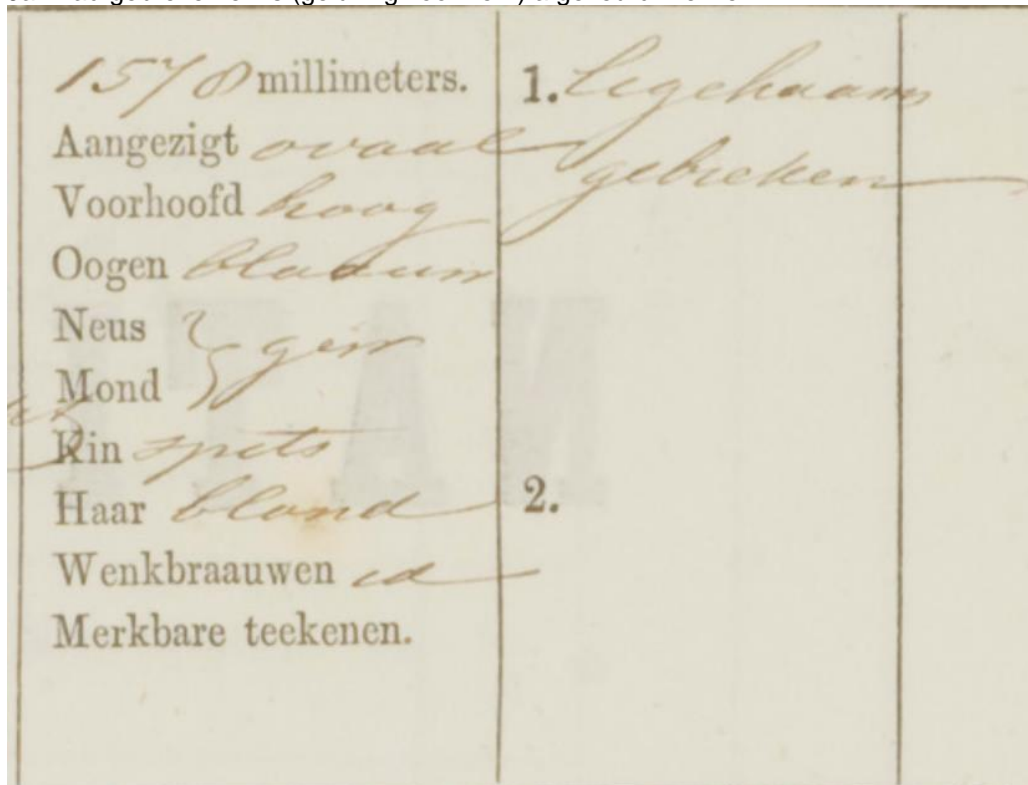 1578 millimeters.
Aangezigt ovaal
Voorhoofd hoog
Oogen blaauw
Neus
Mond } gew
Kin spits
Haar blond
Wenkbraauwen id
Merkbare teekenen.
1. Ligchaams
gebreken
2.